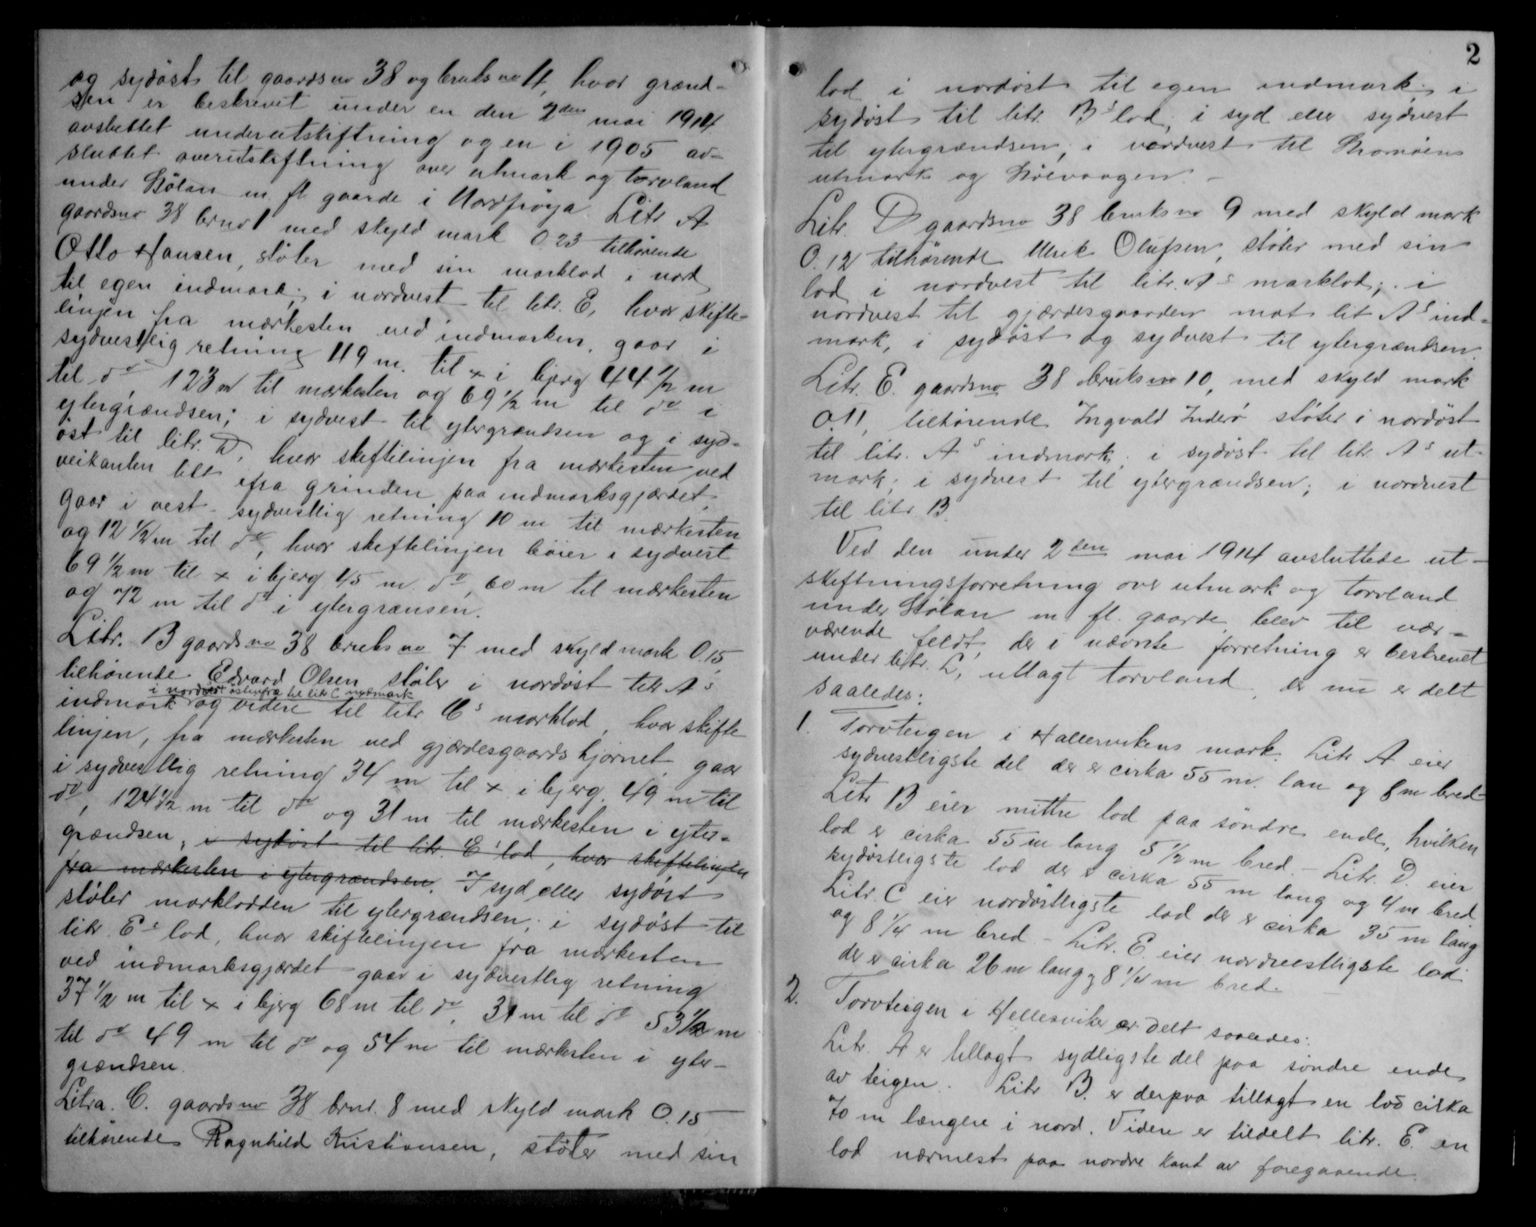 og sydøst til gaardsno 38 og bruks no 11, hvor grænd-
sen er beskrevet under en den 2den mai 1914
avsluttet underutskiftning og en i 1905 av-
sluttet overutskiftning over utmark og torvland
under Stølan m fl gaarde i Nordfrøya. Litr A
gaardsno 38 brno 1 med skyld mark 0.23 tilhørende
Otto Hansen, støter med sin marklod i nord
til egen indmark; i nordvest til litr. E, hvor skifte-
linjen fra mærkesten ved indmarken, gaar i
sydvestlig retning 119 m. til x i bjerg 44 1/2 m
til do 123 m til mærkesten og 69 1/2 m til do i
ytergrændsen; i sydvest til ytergrændsen og i syd-
øst til litr. D, hvor skiftelinjen fra mærkesten ved
veikanten litt ifra grinden paa indmarksgjærdet,
gaar i vest-sydvestlig retning 10 m til mærkesten
og 12 1/2 m til do, hvor skiftelinjen bøier i sydvest
69 1/2 m til x i bjerg 45 m. do, 60 m til mærkesten
og 72 m til do i ytergrænsen.
Litr. B gaardsno 38 bruks no 7 med skyld mark 0.15,
tilhørende Edvard Olsen støter i nordøst til A's
i nordvest østenfra til litr C indmark
indmark og videre til litr C's marklod, hvor skifte-
linjen, fra mærkesten ved gjærdesgaards hjørnet, gaar
i sydvestlig retning 34 m til x i bjerg. 49 m til
do, 124 1/2 m til do og 31 m til mærkesten i yter-
grændsen, i sydøst til litr. E's lod, hvor skiftelinjen
fra mærkesten i ytergrændsen. I syd eller sydvest
støter marklodden til ytergrændsen; i sydøst til
litr. E's lod, hvor skiftelinjen fra mærkesten
ved indmarksgjærdet gaar i sydvestlig retning
37 1/2 m til x i bjerg 68 m til do, 31 m til do 53 1/2 m
til do 49 m til do og 54 m til mærkesten i yter-
grændsen.
Litra. C. gaardsno 38 brnr. 8 med skyld mark 0.15,
tilhørende Ragnhild Kristiansen, støter med sin
2
lod i nordøst til egen indmark; i
sydøst til litr. B's lod, i syd eller sydvest
til ytergrændsen, i nordvest til
utmark og Stølvaagen. -
Litr. D gaardsno 38 bruks no 9 med skyld mark
0.12 tilhørende Ulrik Olufsen, støter med sin
lod i nordvest til litr. A's marklod; i
nordvest til gjærdesgaarden mot lit A's ind-
mark, i sydøst og sydvest til ytergrændsen.
Litr. E. gaardsno 38 bruks no 10, med skyld mark
0.11, tilhørende Ingvald Inderø støter i nordøst
til litr. A's indmark; i sydøst til litr. A's ut-
mark; i sydvest til ytergrændsen; i nordvest
til litr B.
Ved den under 2den mai 1914 avsluttede ut-
skiftningsforretning over utmark og torvland
under Stølan m fl. gaarde, blev til nær-
værende feldt, der i nævnte forretning er beskrevet
under litr. L, utlagt torvland, der nu er delt
saaledes:
1. Torvteigen i Hallervikens mark. Litr A eier
sydvestligste del der er cirka 55 m. lan og 8 m bred
Litr B eier mittre lod paa søndre ende, hvilken
lod er cirka 55 m lang 5 1/2 m bred. - Litr. D. eier
sydøstligste lod der er cirka 55 m lang og 4 m bred
Litr. C eier nordøstligste lod der er cirka 35 m lang
og 8 1/4 m bred - Litr. E. eier nordvestligste lod
der er cirka 26 m lang og 8 1/4 m bred. -
2. Torvteigen i Hellesviker er delt saaledes:
Litr. A er tillagt sydligste del paa søndre ende
av teigen. Litr B. er derpaa tillagt en lod cirka
70 m længere i nord. Videre er tildelt litr. E. en
lod nærmest paa nordre kant av foregaaende